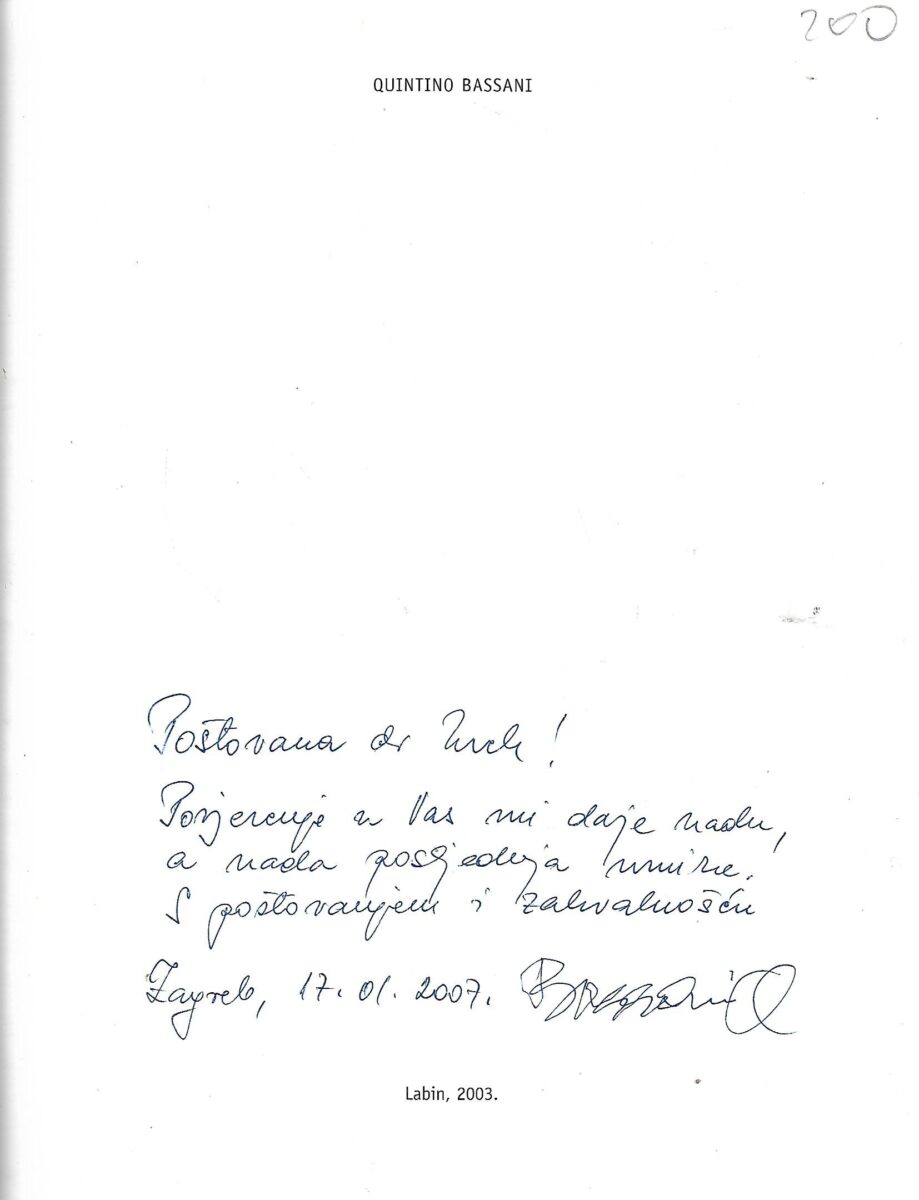 200
QUINTINO BASSANI
Poštovana dr !
Povjerenje u Vas mi daje nadu,
a nada posljednja umire.
S poštovanjem i zahvalnošću
Zagreb, 17. 01. 2007. Bassani Q
Labin, 2003.